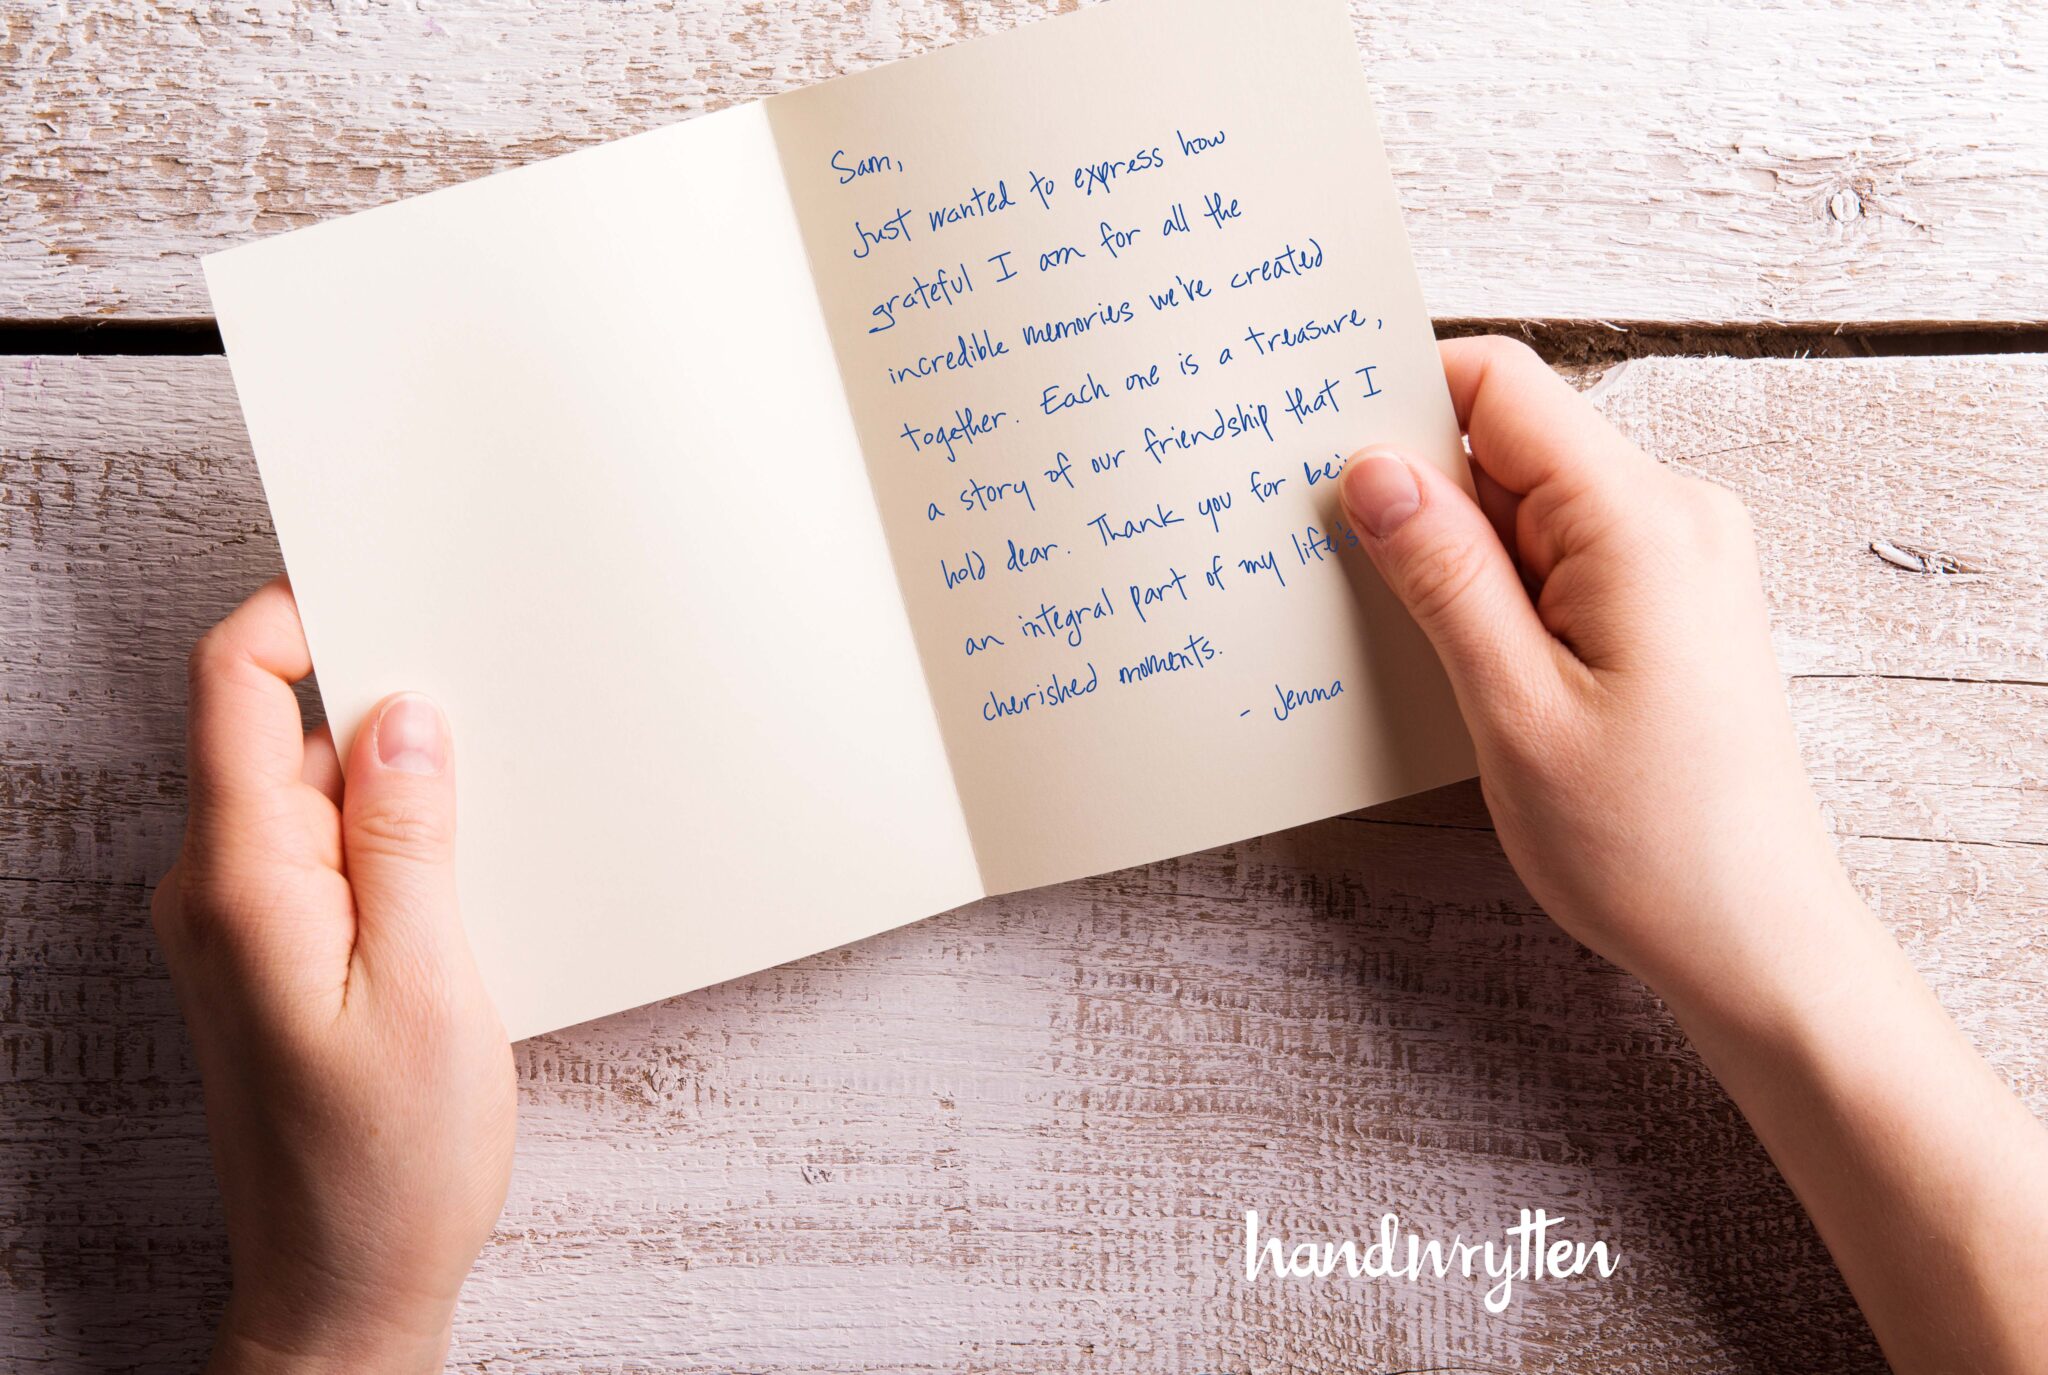 Sam,
Just wanted to express how
grateful I am for all the
incredible memories we've created
together. Each one is a treasure,
a story of our friendship that I
hold dear. Thank you for bei
an integral part of my life's
cherished moments.
- Jenna
handwrytten